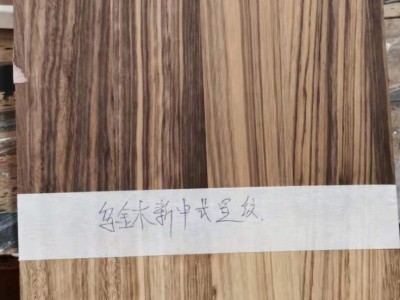 乌金木新中式直纹.